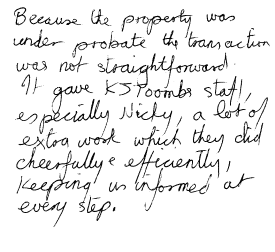 Because the property was
under probate the transaction
was not straightforward.
It gave KJToombs staff,
especially Nicky, a lot of
extra work which they did
cheerfully & efficiently,
keeping us informed at
every step.